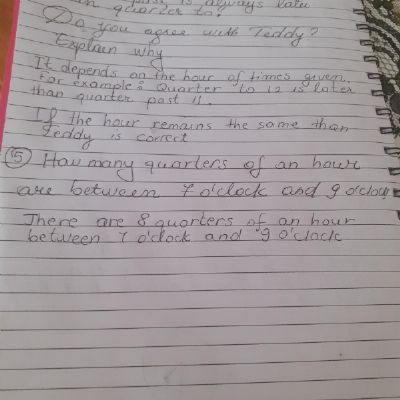 past is always later
quarter to.
Do you agree with Teddy?
Explain why
It depends on the hour of times given.
For example: Quarter to 12 is later
than quarter past 11.
If the hour remains the same than
Teddy is correct
⑤ How many quarters of an hour
are between 7 o'clock and 9 o'clock
There are 8 quarters of an hour
between 7 o'clock and 9 o'clock